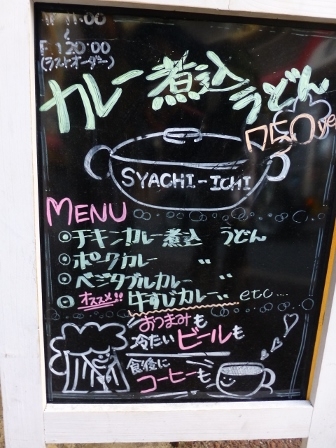 11:00
〜
120:00
(ラストオーダー)
カレー煮込うどん
OPEN
SYACHI-ICHI
MENU
チキンカレー煮込 うどん
ポークカレー 〃
ベジタブルカレー 〃
オススメ!! 牛すじカレー 〃 etc...
おつまみも
冷たいビールも
食後に
コーヒーも